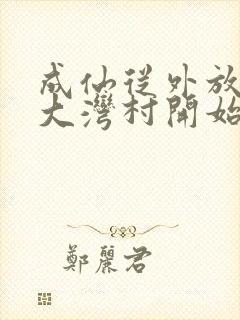 成仙從外放
大灣村開始
鄭麗君